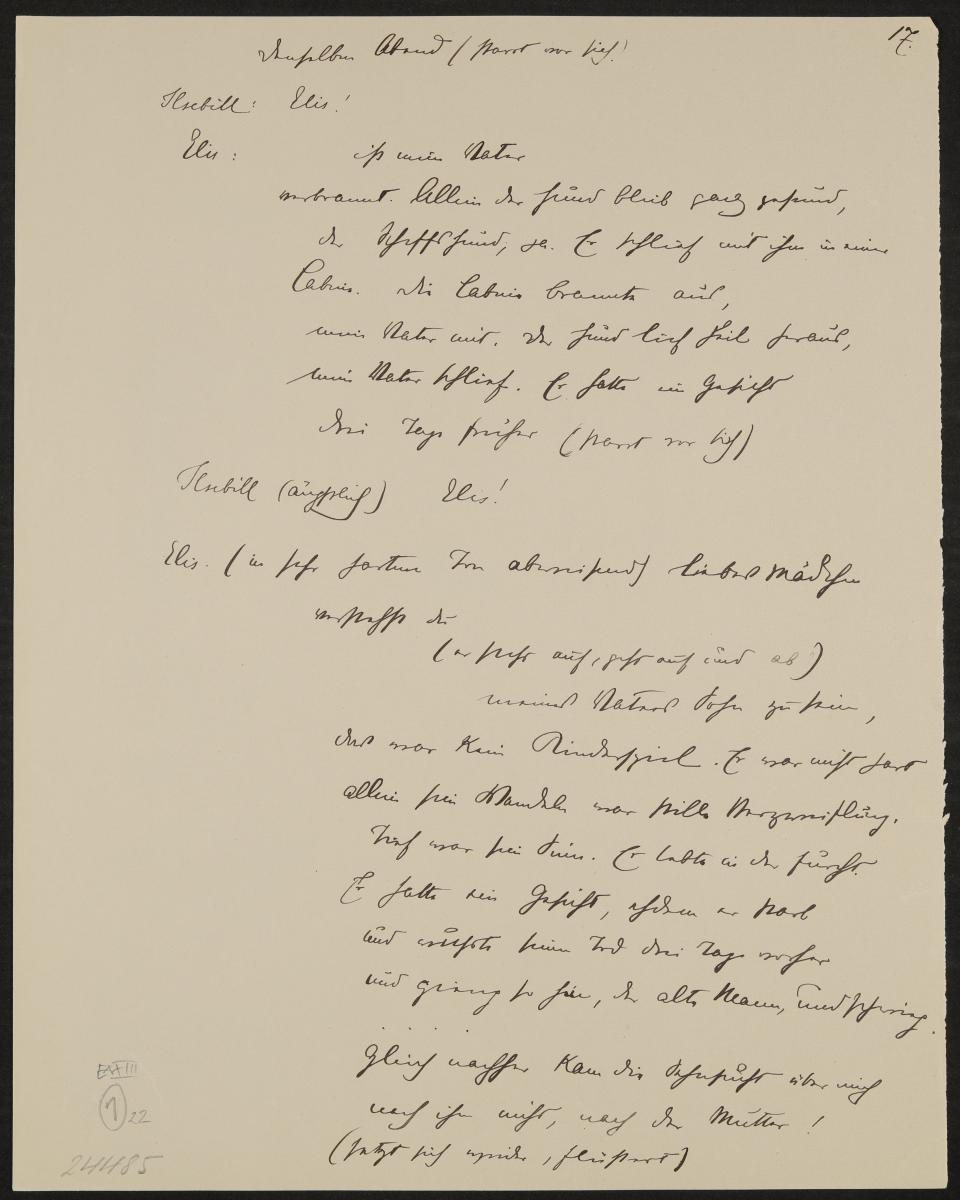 17.
denselben Abend (starrt vor sich!
Ilsebill: Elis!
Elis: ist mein Vater
verbrannt. Allein der Hund blieb ganz gesund,
der Schiffshund, ja. Er schlief mit ihm in einer
Cabine. Die Cabine brannte aus,
mein Vater mit. Der Hund lief heil heraus,
mein Vater schlief. Er hatte ein Gesicht
drei Tage früher (starrt vor sich)
Ilsebill (ängstlich) Elis!
Elis. (in sehr hartem Ton abweisend) liebes Mädchen
verstehst du
(er steht auf, geht auf und ab)
meines Vaters Sohn zu sein,
das war kein Kinderspiel. Er war nicht hart
allein sein Wandeln war stille Verzweiflung.
Tief war sein Sinn. Er lebte in der Furcht.
Er hatte ein Gesicht, ehdem er starb
und wusste seinen Tod drei Tage vorher
und gieng so hin, der alte Mann, und schwieg.
. . . .
Gleich nachher kam die Sehnsucht über mich
nach ihm nicht, nach der Mutter!
(setzt sich wieder, flüstert)
EVIII
1 22
24485